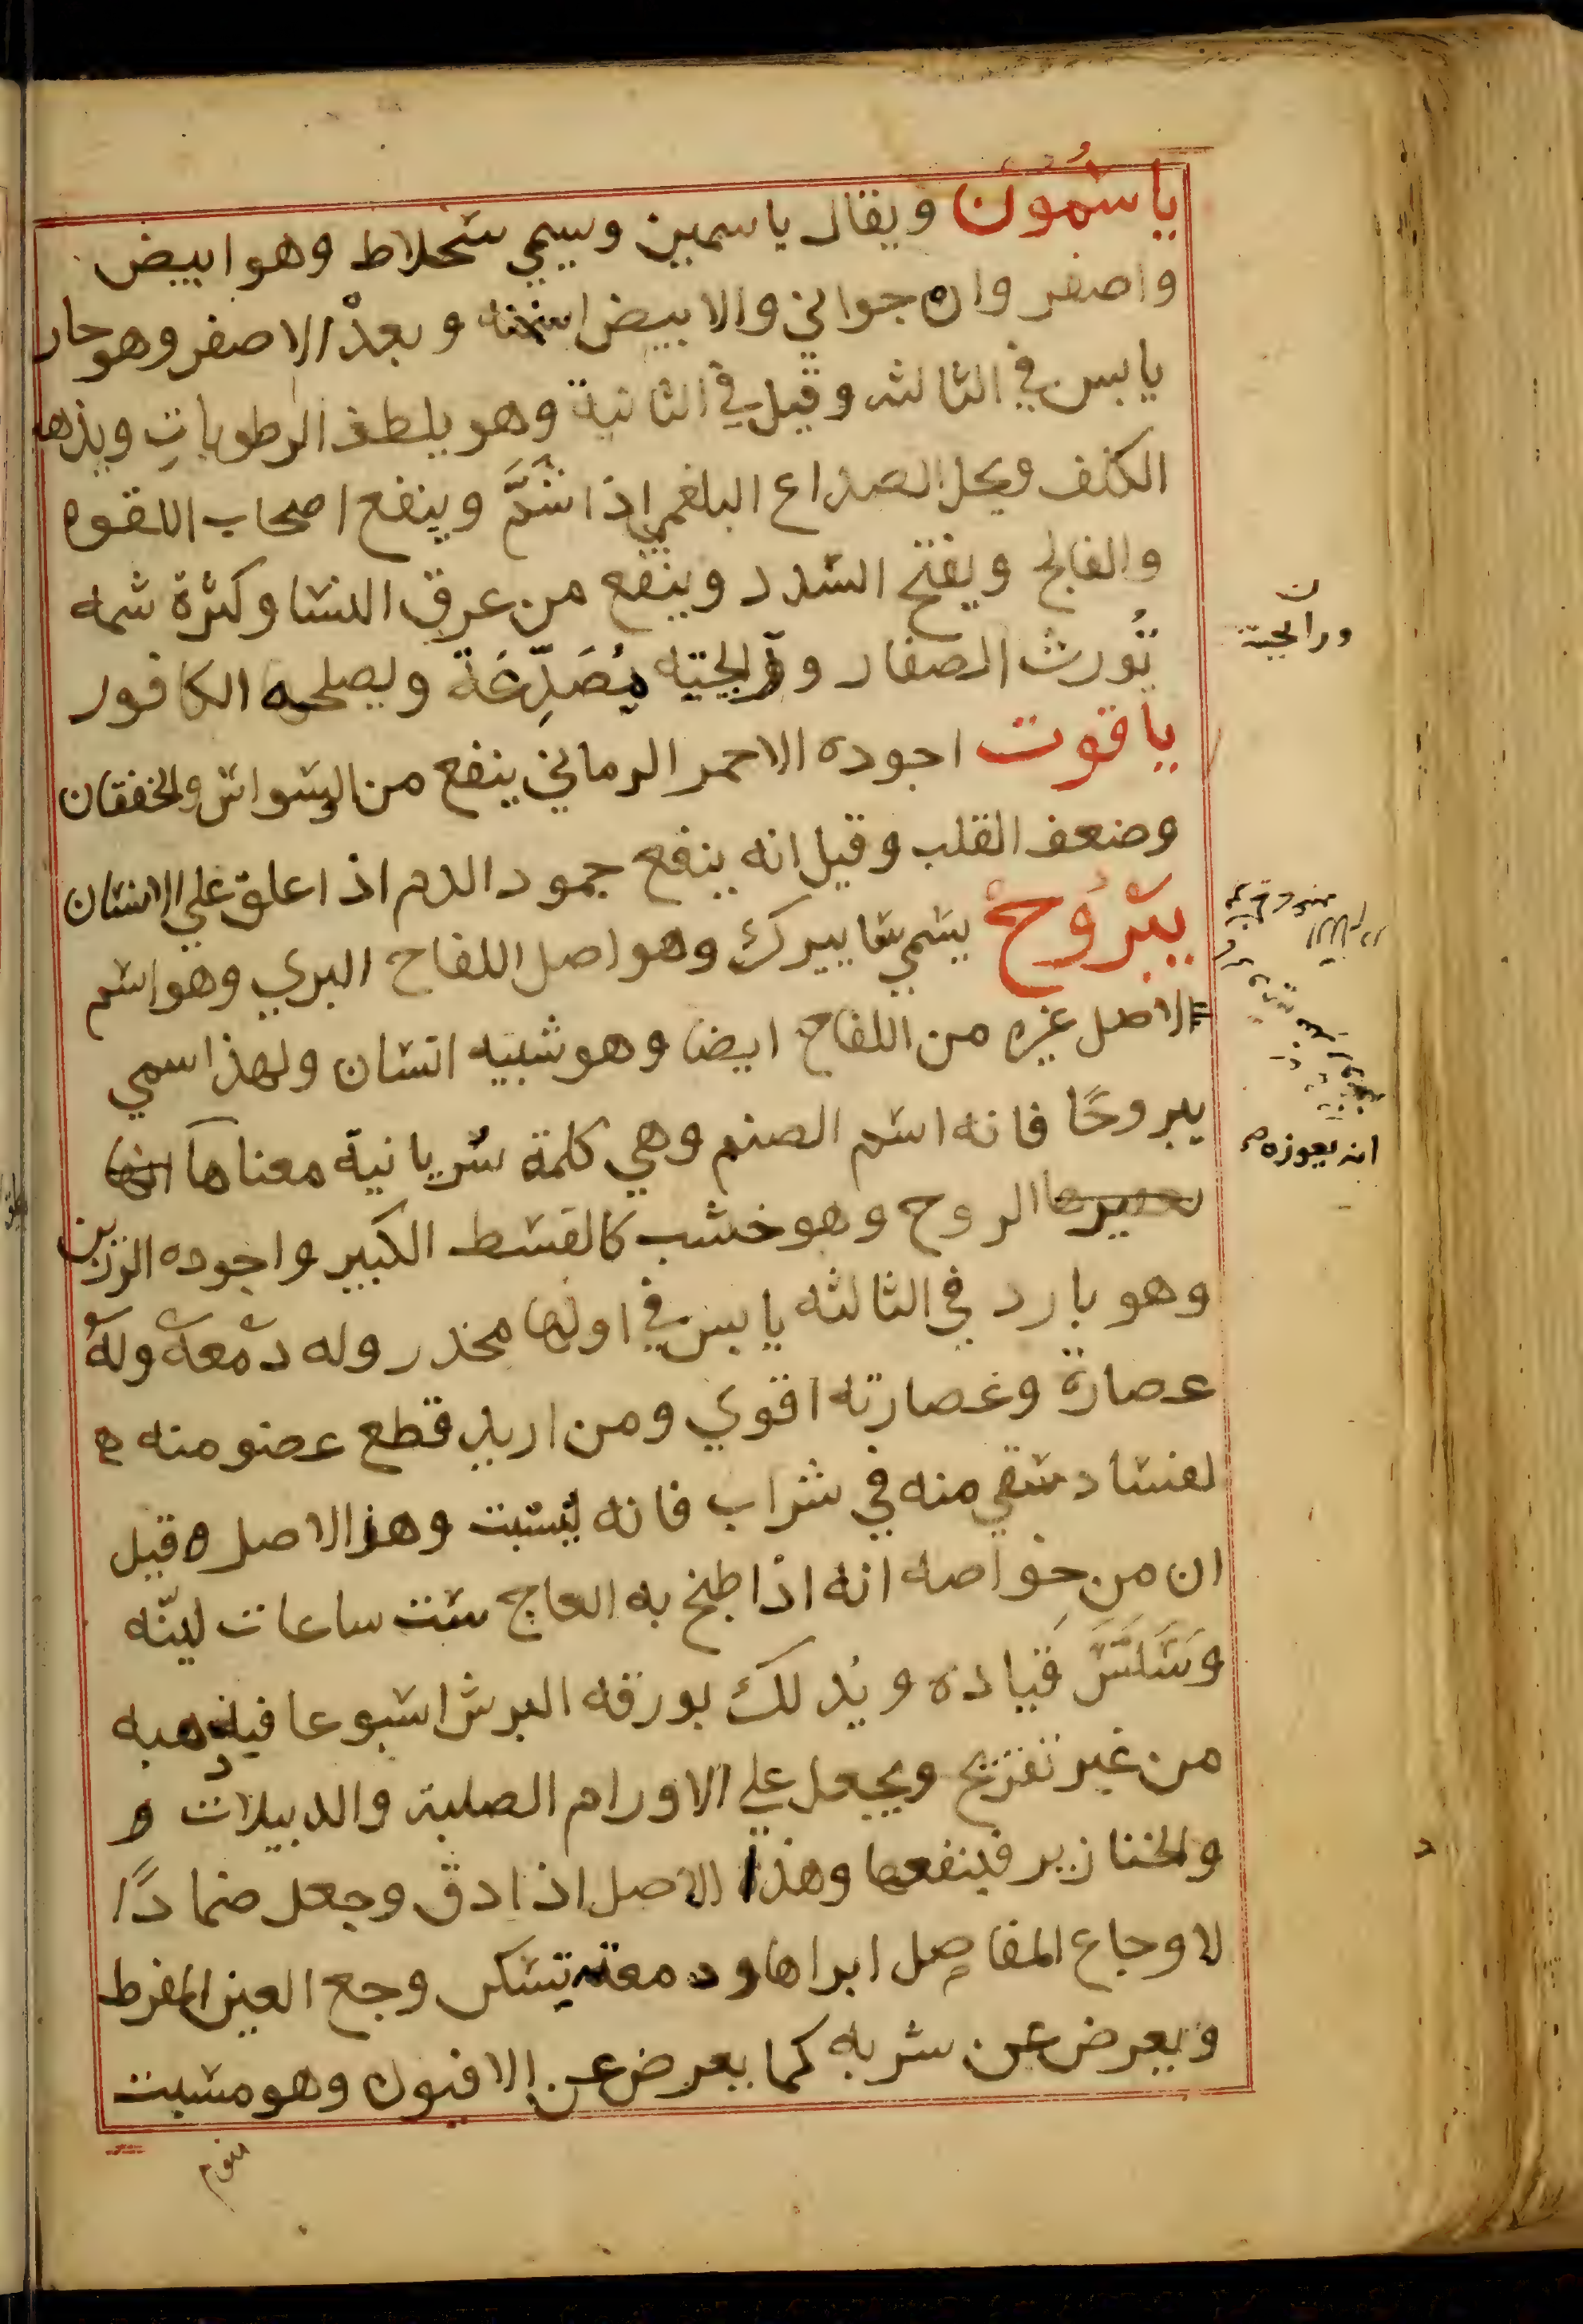 ياسمون ويقال ياسمين ويسمي سحلاط وهو ابيض
واصفر وارجواني والابيض اسخنه وبعده الاصفر وهو حار
يابس في الثالثه وقيل في الثانية وهو يلطف الرطوبات ويذهب
الكلف ويحل الصداع البلغمي اذا شَمَّ وينفع اصحاب اللقوه
والفالج ويفتح السدد وينفع من عرق النسا وكثرة شمه
تُورث الصفار ورايحته مُصَدِّعَة ويصلحه الكافور
ياقوت اجوده الاحمر الرماني ينفع من الوسواس والخفقان
وضعف القلب وقيل انه ينفع جمود الدم اذا علق علي الانسان
يبروح يسمي سابيرك وهو اصل اللفاح البري وهو اسم
الاصل غيره من اللفاح ايضا وهو شبيه انسان ولهذا سمي
يبروحًا فانه اسم الصنم وهي كلمة سريانية معناها
الروح وهو خشب كالقسط الكبير واجوده الرزين
وهو بارد في الثالثه يابس في اولها مخدر وله دمعة وله
عصارة وعصارته اقوي ومن اريد قطع عضو منه
لفساد سقي منه في شراب فانه يسبت وهذا الاصل قيل
ان من خواصه انه اذا طبخ به العاج ست ساعات ليّنه
وسَلَّسَ قياده ويدلك بورقه البرش اسبوعا فيذهبه
من غير تقريح ويجعل علي الاورام الصلبة والدبيلات و
والخنازير فينفعها وهذا الاصل اذا دق وجعل ضمادًا
لاوجاع المفاصل ابراها ودمعته تسكن وجع العين المفرط
ويعرض عن شربه كما يعرض عن الافيون وهو مسبت
ن
ورايحته
انه يعوزه
منوم